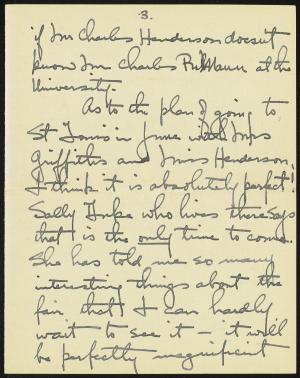 3.
if Mr Charles Henderson doesn't
know Mr Charles at the
University.
As to the plan of going to
St Louis in June with Mrs
Griffiths and Miss Henderson,
I think it is absolutely perfect!
Sally who lives there says
that is the only time to come.
She has told me so many
interesting things about the
fair that I can hardly
wait to see it – it will
be perfectly magnificent